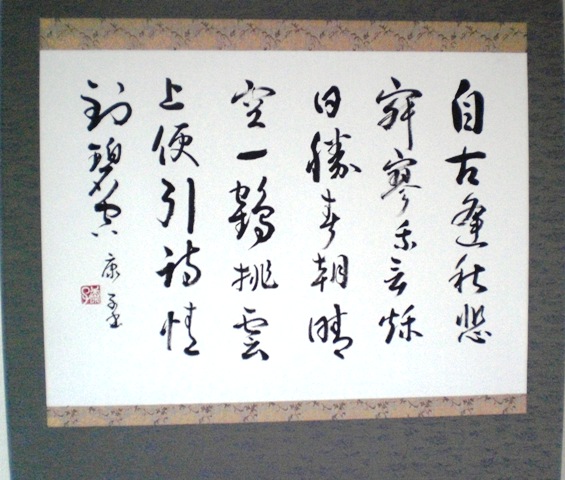 自古逢秋悲
寂寥我言秋
日勝春朝晴
空一鶴排雲
上便引詩情
到碧霄 康